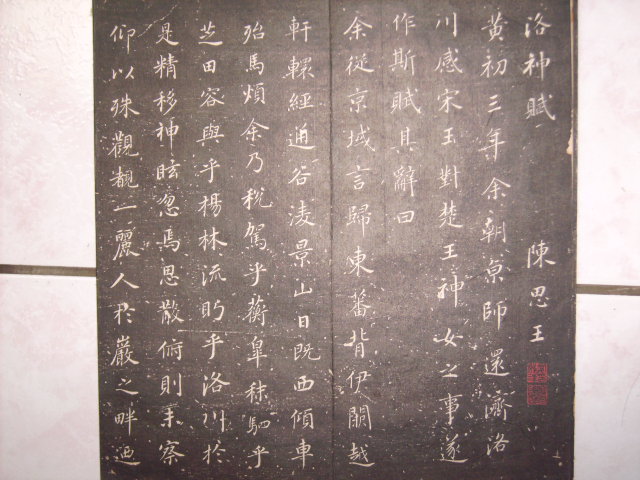 洛神賦 陳思王
黃初三年余朝京師還濟洛
川感宋玉對楚王神女之事遂
作斯賦其辭曰
余從京域言歸東蕃背伊闕越
軒轅經通谷淩景山日既西傾車
殆馬煩余乃稅駕乎蘅皐秣駟乎
芝田容與乎楊林流眄乎洛川於
是精移神眩忽焉思散俯則未察
仰以殊觀覩一麗人於巖之畔迺